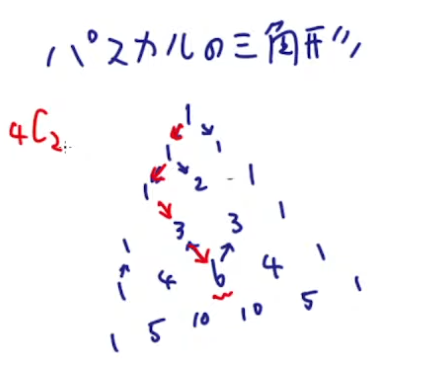 パスカルの三角形
₄C₂
1
1 1
1 2 1
1 3 3 1
1 4 6 4 1
1 5 10 10 5 1